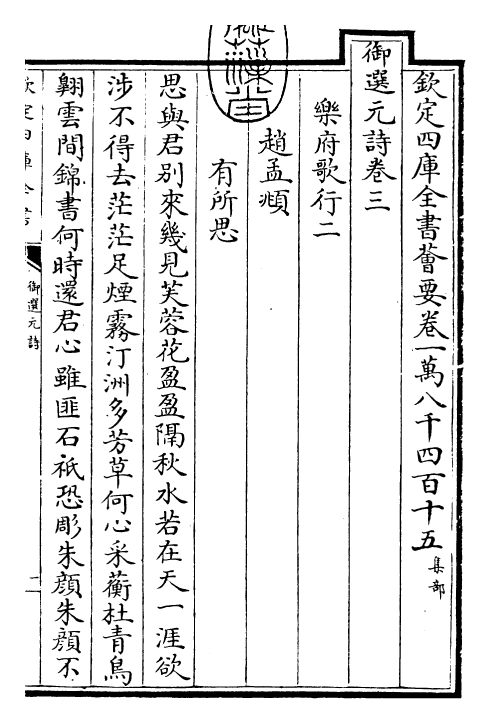 欽定四庫全書薈要卷一萬八千四百十五 集部
御選元詩卷三
樂府歌行二
趙孟頫
有所思
思與君别來幾見芙蓉花盈盈隔秋水若在天一涯欲
涉不得去茫茫足煙霧汀洲多芳草何心采蘅杜青鳥
翺雲間錦書何時還君心雖匪石祇恐彫朱顔朱顔不
御選元詩